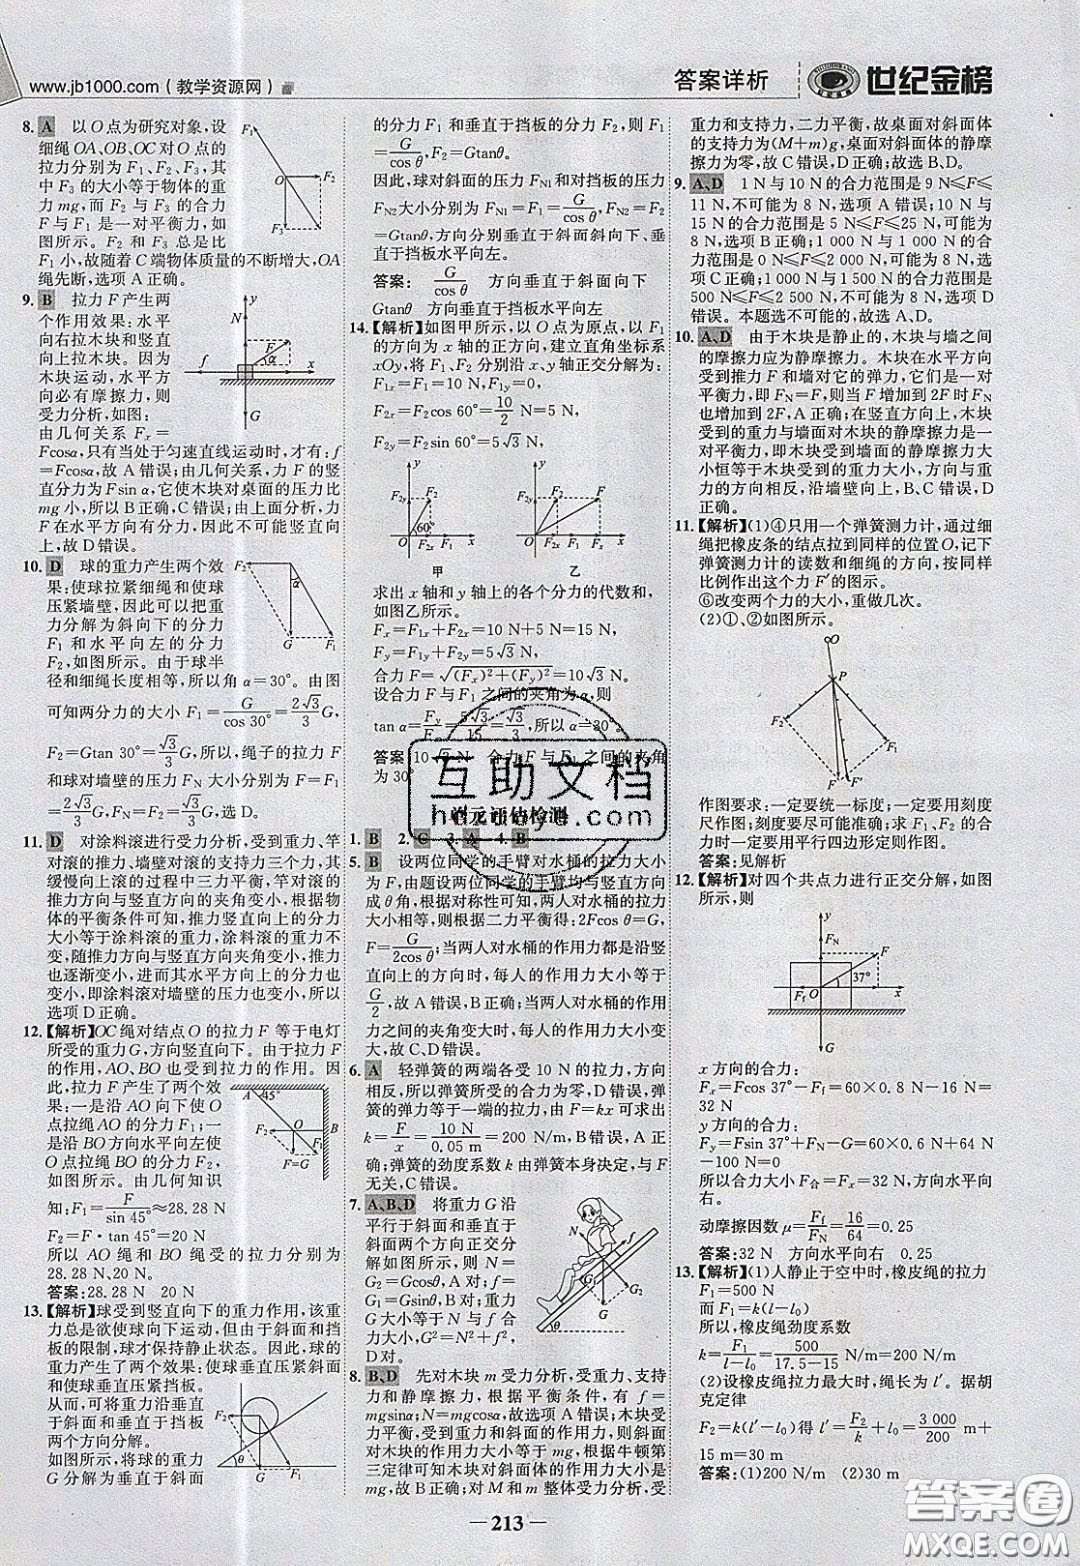 www.jb1000.com（教学资源网）
答案详析
世纪金榜
8. A　以O点为研究对象,设
细绳OA、OB、OC对O点的
拉力分别为F₁、F₂、F₃,其
中F₃的大小等于物体的重
力mg,而F₂与F₃的合力
F与F₁是一对平衡力,如
图所示。F₂和F₃总是比
F₁小,故随着C端物体质量的不断增大,OA
绳先断,选项A正确。
9. B　拉力F产生两
个作用效果:水平
向右拉木块和竖直
向上拉木块。因为
木块运动,水平方
向必有摩擦力,则
受力分析,如图:
由几何关系Fₓ=
Fcosα,只有当处于匀速直线运动时,才有:f
=Fcosα,故A错误;由几何关系,力F的竖
直分力为Fsin α,它使木块对桌面的压力比
mg小,所以B正确,C错误;由上面分析,力
F在水平方向有分力,因此不可能竖直向
上,故D错误。
10. D　球的重力产生两个效
果:使球拉紧细绳和使球
压紧墙壁,因此可以把重
力分解为斜向下的分力
F₁和水平向左的分力
F₂,如图所示。由于球半
径和细绳长度相等,所以角α=30°。由图
可知两分力的大小F₁=G/cos 30°=2√3/3 G,
F₂=Gtan 30°=√3/3 G,所以,绳子的拉力F
和球对墙壁的压力F_N大小分别为F=F₁
=2√3/3 G,F_N=F₂=√3/3 G,选D。
11. D　对涂料滚进行受力分析,受到重力、竿
对滚的推力、墙壁对滚的支持力三个力,其
缓慢向上滚的过程中三力平衡,竿对滚的
推力方向与竖直方向的夹角变小,根据物
体的平衡条件可知,推力竖直向上的分力
大小等于涂料滚的重力,涂料滚的重力不
变,随推力方向与竖直方向夹角变小,推力
也逐渐变小,进而其水平方向上的分力大小
也变小,即涂料滚对墙壁的压力也变小,所以
选项D正确。
12.【解析】OC绳对结点O的拉力F等于电灯
所受的重力G,方向竖直向下。由于拉力F
的作用,AO、BO也受到拉力的作用。因
此,拉力F产生了两个效
果:一是沿AO向下使O
点拉绳AO的分力F₁;一
是沿BO方向水平向左使
O点拉绳BO的分力F₂,
如图所示。由几何知识
知:F₁=F/sin 45°≈28.28 N
F₂=F·tan 45°=20 N
所以AO绳和BO绳受的拉力分别为
28.28 N、20 N。
答案:28.28 N　20 N
13.【解析】球受到竖直向下的重力作用,该重
力总是欲使球向下运动,但由于斜面和挡
板的限制,球才保持静止状态。因此,球的
重力产生了两个效果:使球垂直压紧斜面
和使球垂直压紧挡板。
从而,可将重力沿垂直
于斜面和垂直于挡板
两个方向分解。
如图所示,将球的重力
G分解为垂直于斜面
的分力F₁和垂直于挡板的分力F₂,则F₁=
G/cos θ,F₂=Gtanθ。
因此,球对斜面的压力F_N1和对挡板的压力
F_N2大小分别为F_N1=F₁=G/cos θ,F_N2=F₂=
Gtanθ,方向分别垂直于斜面斜向下、垂直
于挡板水平向左。
答案:G/cos θ　方向垂直于斜面斜向下
Gtanθ　方向垂直于挡板水平向左
14.【解析】如图甲所示,以O点为原点,以F₁
的方向为x轴的正方向,建立直角坐标系
xOy,将F₁、F₂分别沿x、y轴正交分解为:
F₁ₓ=F₁=10 N,F₁y=0;
F₂ₓ=F₂cos 60°=10/2 N=5 N,
F₂y=F₂sin 60°=5√3 N,
甲
乙
求出x轴和y轴上的各个分力的代数和,
如图乙所示。
Fₓ=F₁ₓ+F₂ₓ=10 N+5 N=15 N,
Fy=F₁y+F₂y=5√3 N,
合力F=√((Fₓ)²+(Fy)²)=10√3 N
设合力F与F₁之间的夹角为α,则
tan α=Fy/Fₓ=5√3/15=√3/3,所以α=30°。
答案:10√3 N　合力F与F₁之间的夹角
为30°
单元评估检测
1. B　2. C　3. A　4. B
5. B　设两位同学的手臂对水桶的拉力大小
为F,由题设两位同学的手臂均与竖直方向成
θ角,根据对称性可知,两人对水桶的作用力大
小相等,则根据二力平衡得:2Fcos θ=G,
F=G/2cosθ;当两人对水桶的作用力都是沿竖
直向上的方向时,每人的作用力大小等于
G/2,故A错误,B正确;当两人对水桶的作用
力之间的夹角变大时,每人的作用力大小变
大,故C、D错误。
6. A　轻弹簧的两端各受10 N的拉力,方向
相反,所以弹簧所受的合力为零,D错误,弹
簧的弹力等于一端的拉力,由F=kx可求出
k=F/x=10 N/0.05 m=200 N/m,B错误,A正
确;弹簧的劲度系数k由弹簧本身决定,与F
无关,C错误。
7. A、B、D　将重力G沿
平行于斜面和垂直于
斜面两个方向正交分
解如图所示,则N=
G₂=Gcosθ,f=
G₁=Gsinθ,故重力
G₁、G₂大小分别
与f、N大小相
等,G²=N²+f²,A、B、
D对。
8. B、D　先对木块m受力分析,受重力、支持
力和静摩擦力,根据平衡条件,有f=
mgsinα;N=mgcosα,故选项A错误;木块受
到斜面体的作用力与木块的重力平衡,故斜
面对木块的作用力大小等于mg,根据牛顿第
三定律可知木块对斜面体的作用力大小为
mg,故选项B正确;对M和m整体受力分析,受
重力和支持力,二力平衡,故桌面对斜面体
的支持力为(M+m)g,桌面对斜面体的静摩
擦力为零,故C错误,D正确;故选B、D。
9. A、D　1 N与10 N的合力范围是9 N≤F≤
11 N,不可能为8 N,选项A错误;10 N与
15 N的合力范围是5 N≤F≤25 N,可能为
8 N,选项B正确;1 000 N与1 000 N的合
力范围是0 N≤F≤2 000 N,可能为8 N,
选项C正确;1 000 N与1 500 N的合力范围是
500 N≤F≤2 500 N,不可能为8 N,选项D
错误。本题选不可能的,故选A、D。
10. A、D　由于木块是静止的,木块与墙之间
的摩擦力应为静摩擦力。木块在水平方向
受到推力F和墙对它的弹力,它们是一对
平衡力,即F_N=F,当F增加到2F时F_N
也增加到2F,A正确;在竖直方向上,木块
受到的重力与墙面对木块的静摩擦力是一
对平衡力,即木块受到墙面的静摩擦力大
小恒等于木块受到的重力大小,方向与重
力的方向相反,沿墙壁向上,B、C错误,D
正确。
11.【解析】(1)④只用一个弹簧测力计,通过细
绳把橡皮条的结点拉到同样的位置O,记下
弹簧测力计的读数和细绳的方向,按同样
比例作出这个力F′的图示。
⑥改变两个力的大小,重做几次。
(2)①、②如图所示。
作图要求:一定要统一标度;一定要用刻度
尺作图;刻度要尽可能准确;由F₁、F₂求合
力时一定要用平行四边形定则作图。
答案:见解析
12.【解析】对四个共点力进行正交分解,如图
所示,则
x方向的合力:
Fₓ=Fcos 37°-F_f=60×0.8 N-16 N=
32 N
y方向的合力:
Fy=Fsin 37°+F_N-G=60×0.6 N+64 N
-100 N=0
所以合力大小F合=Fₓ=32 N,方向水平向
右。
动摩擦因数μ=F_f/F_N=16/64=0.25
答案:32 N　方向水平向右　0.25
13.【解析】(1)人静止于空中时,橡皮绳的拉力
F₁=500 N
而F₁=k(l-l₀)
所以,橡皮绳劲度系数
k=F₁/(l-l₀)=500/(17.5-15) N/m=200 N/m
(2)设橡皮绳拉力最大时,绳长为l′。据胡
克定律
F₂=k(l′-l₀)得l′=F₂/k+l₀=3 000/200 m+
15 m=30 m
答案:(1)200 N/m　(2)30 m
— 213 —
互助文档
hdoye.com
答案圈
MXQE.COM